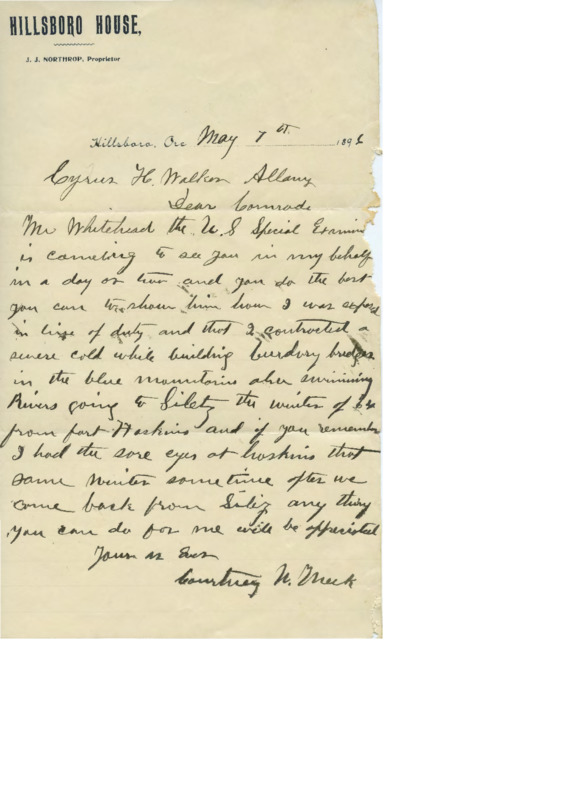 HILLSBORO HOUSE,
J. J. NORTHROP, Proprietor
Hillsboro, Ore May 7th 189
Cyrus H. Walker Albany
Dear Comrade
Mr Whitehead the U.S Special Examin
is comeing to see you in my behalf
in a day or two and you do the best
you can to show him how I was expos
in line of duty and that I contracted a
severe cold while building bridges
in the blue mountains also swimming
Rivers going to Siletz the winter of
from fort Hoskins and if you remember
I had the sore eyes at hoskins that
same winter sometime after we
come back from Siletz any thing
you can do for me will be appreciated
Yours as Ever
Courtney W. Meek